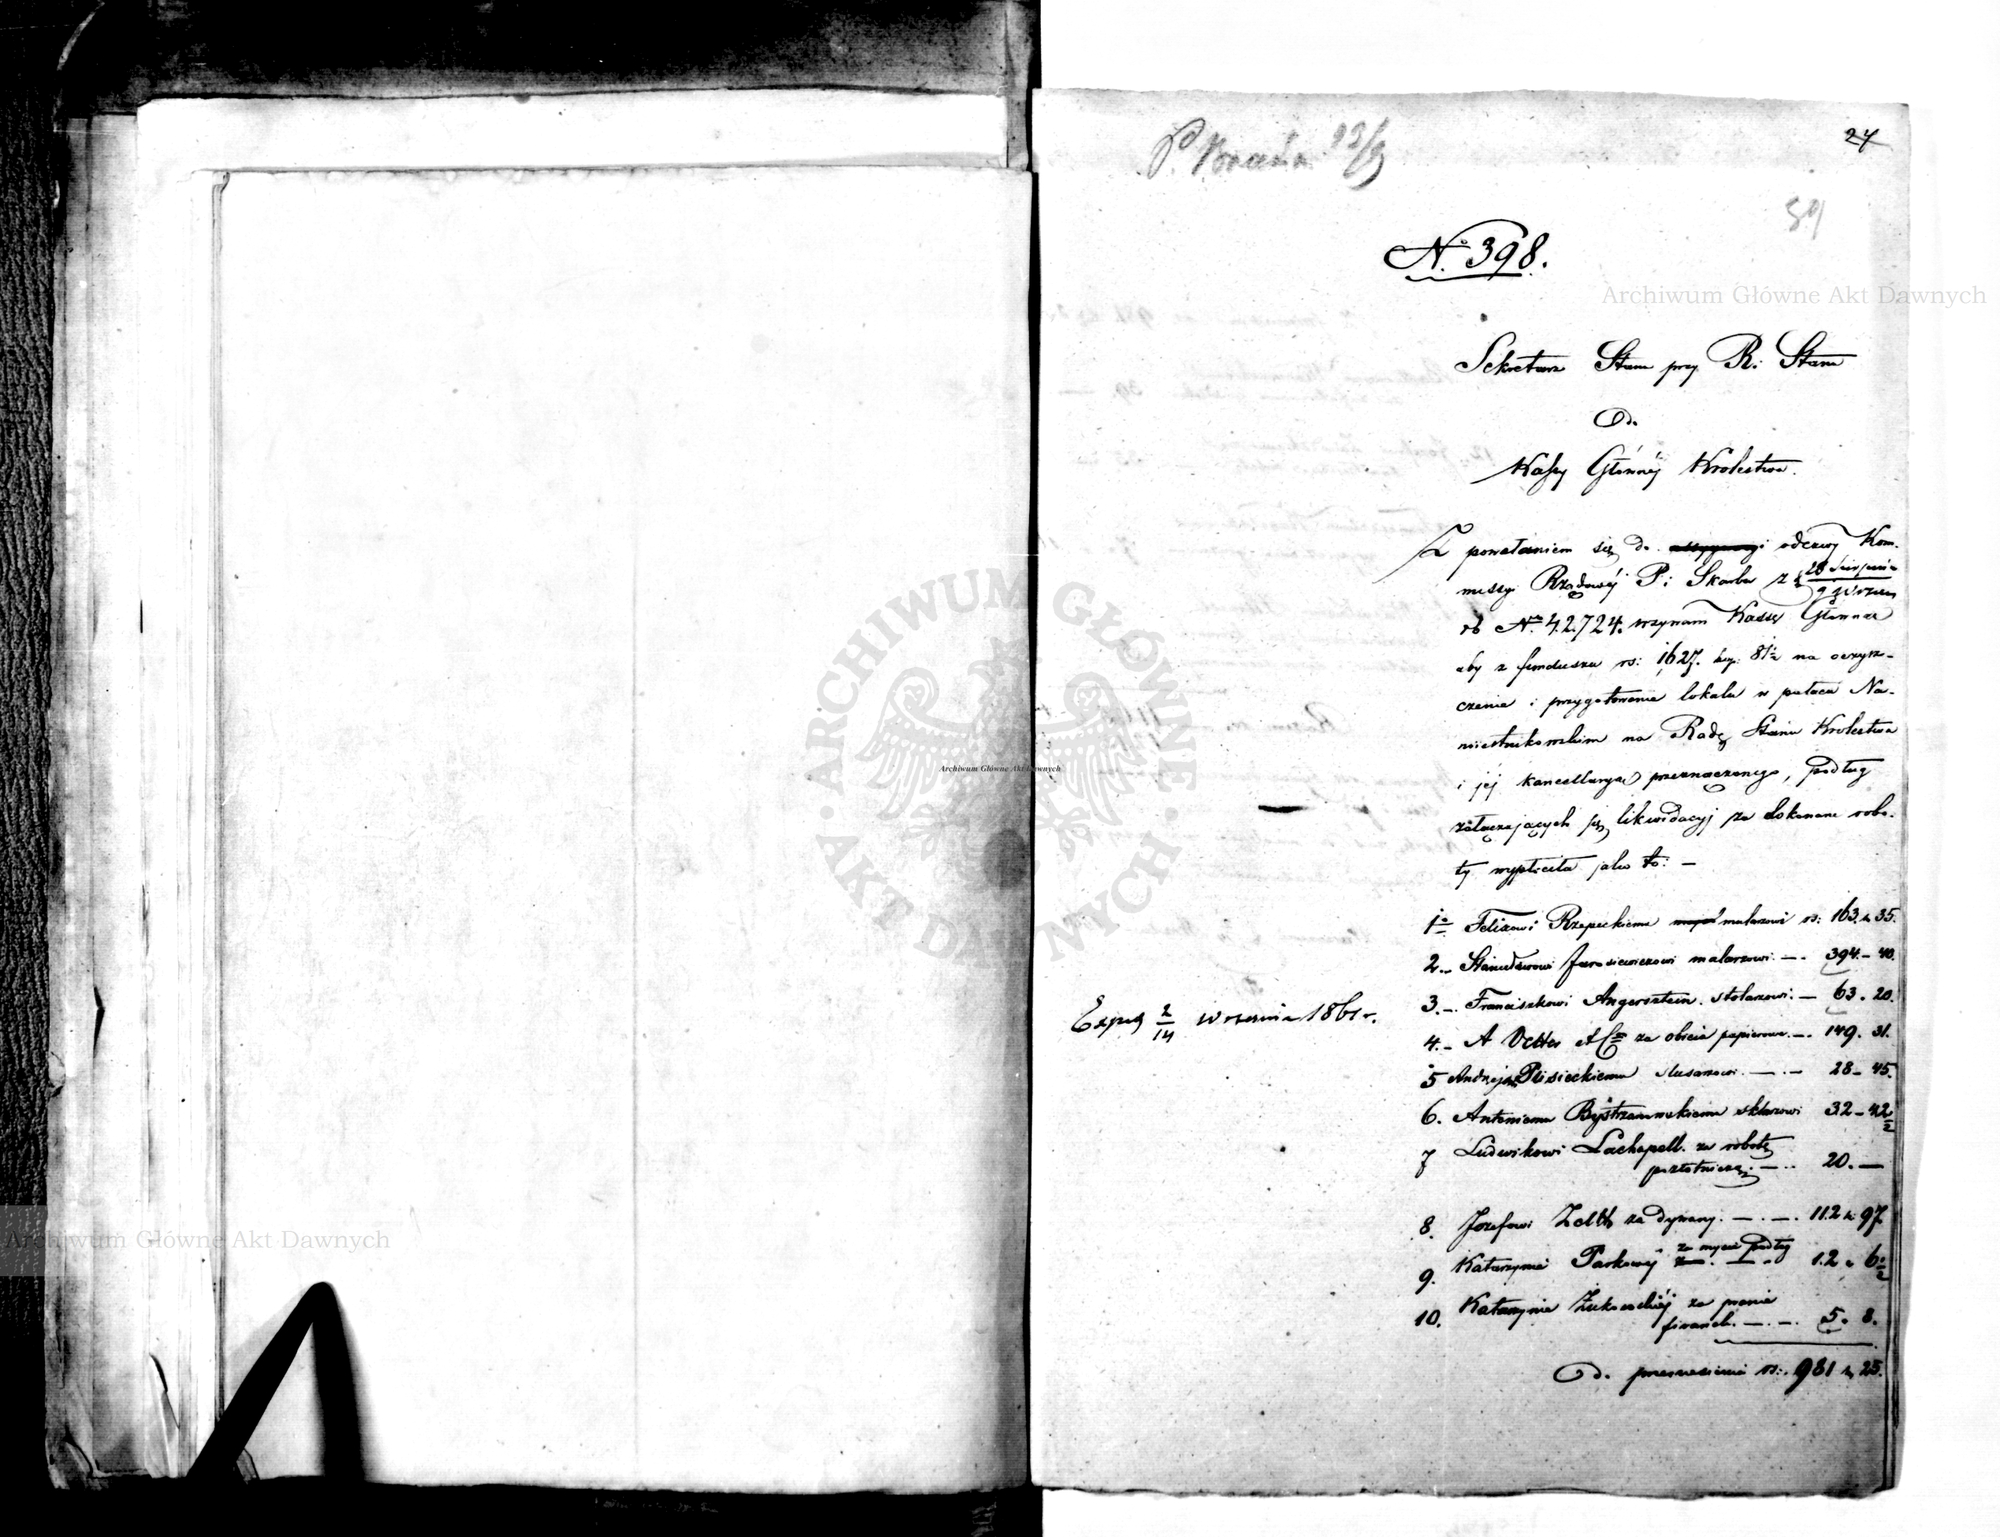 P. 13/9
24
59
Nº 398.
Archiwum Główne Akt Dawnych
Sekretarz Stanu przy R: Stanu
Do
Kassy Głównéj Krolestwa.
Z powołaniem się do odezwy Kom.
missyi Rządowéj P: i Skarbu z d 28 Sierpnia
9 Wrześn
rb Nro 42,724. wzywam Kassę Główną
aby z funduszu rs: 1627. kop: 81½ na oczysz-
czenie i przygotowanie lokalu w pałacu Na-
miestnikowskim na Radę Stanu Krolestwa
i jej kancellaryę przeznaczonego, podług
załączających się likwidacyj za dokonane robo-
ty wypłaciła jako to: —
1o Felixowi Rzepeckiemu malarzowi rs: 163. k 35.
2.. Stanisławowi Jarosiewiczowi malarzowi. — . 394. – 40.
3. –. Franciszkowi Angersztein. stolarzowi. — 63. 20.
Exped 2/14 września 1861 r.
4. – A Vetter et Co za obicia papierowe. — . 149. 31.
5 Andrzejowi Plisieckiemu slusarzowi. — . — 28 – 45.
6. Antoniemu Bystrzanowskiemu szklarzowi 32 – 42½
7 Ludwikowi Lachapell. za robotę
pozłotniczą. — . . 20. —
8. Jozefowi Zeltt za dywany. — . — . 112 k 97
9. Katarzynie Parkowéj za mycie podłog 12 „ 6½
10. Katarzynie Żukowskiéj za pranie
firanek. — . — . 5. 8.
Do przeniesienia rs: 981 k 25.
ARCHIWUM GŁÓWNE AKT DAWNYCH
Archiwum Główne Akt Dawnych
Archiwum Główne Akt Dawnych